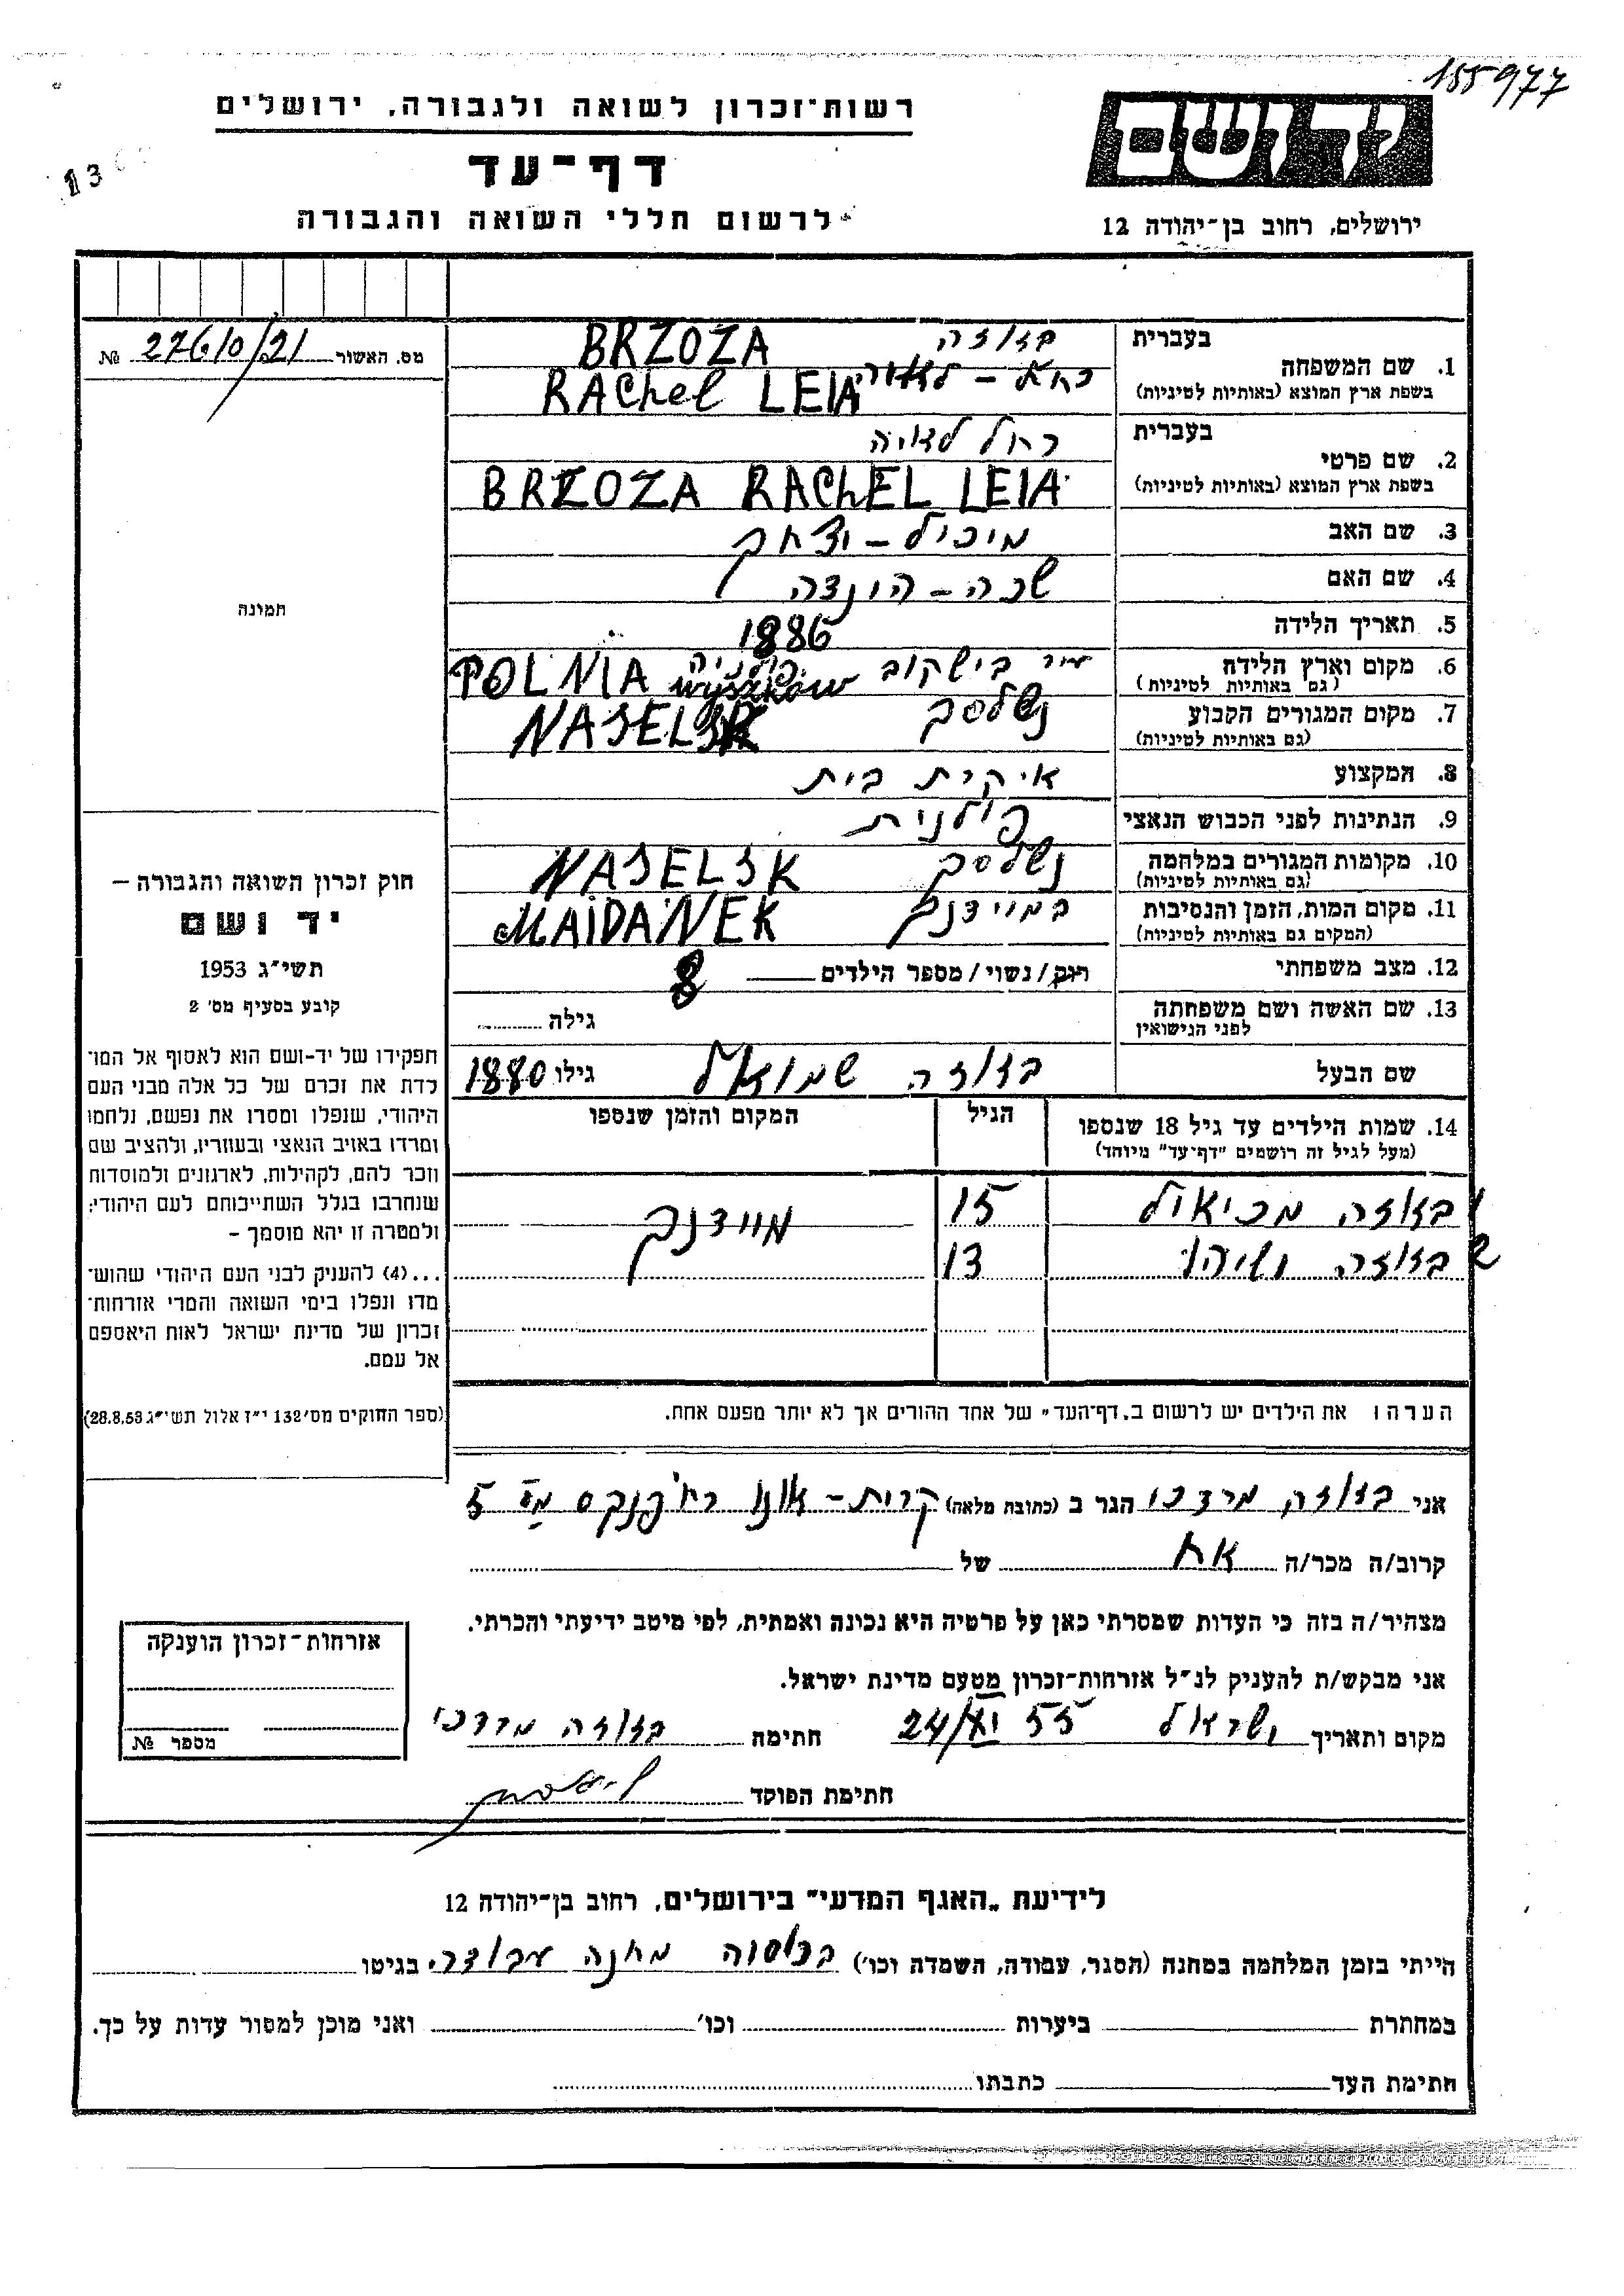 155977
רשות־זכרון לשואה ולגבורה, ירושלים
יד ושם
דף־עד
13
לרשום חללי השואה והגבורה
ירושלים, רחוב בן־יהודה 12
מס. האשור № 276/0/21
1. שם המשפחה
בעברית
BRZOZA
בשפת ארץ המוצא (באותיות לטיניות)
RAChel LEIA
2. שם פרטי
בעברית רחל
בשפת ארץ המוצא (באותיות לטיניות)
BRZOZA RAChEL LEIA
3. שם האב
4. שם האם שבה -
5. תאריך הלידה 1886
6. מקום וארץ הלידה
(גם באותיות לטיניות)
POLNIA פולניה Wyszków עיר בישקוב
7. מקום המגורים הקבוע
(גם באותיות לטיניות)
NASELSK
8. המקצוע בית
9. הנתינות לפני הכבוש הנאצי פולנית
10. מקומות המגורים במלחמה
(גם באותיות לטיניות)
NASELSK
11. מקום המות, הזמן והנסיבות
(המקום גם באותיות לטיניות)
במיידנק MAIDANEK
12. מצב משפחתי רוק/נשוי/מספר הילדים 8
13. שם האשה ושם משפחתה
לפני הנישואין
גילה
שם הבעל שמואל גילו 1880
14. שמות הילדים עד גיל 18 שנספו
(מעל לגיל זה רושמים "דף־עד" מיוחד)
הגיל
המקום והזמן שנספו
1 15 מיידנק
2 13
תמונה
חוק זכרון השואה והגבורה –
יד ושם
תשי״ג 1953
קובע בסעיף מס' 2
תפקידו של יד-ושם הוא לאסוף אל המו־
לדת את זכרם של כל אלה מבני העם
היהודי, שנפלו ומסרו את נפשם, נלחמו
ומרדו באויב הנאצי ובעוזריו, ולהציב שם
וזכר להם, לקהילות, לארגונים ולמוסדות
שנחרבו בגלל השתייכותם לעם היהודי;
ולמטרה זו יהא מוסמך –
...(4) להעניק לבני העם היהודי שהוש־
מדו ונפלו בימי השואה והמרי אזרחות־
זכרון של מדינת ישראל לאות היאספם
אל עמם.
(ספר החוקים מס׳132 י״ז אלול תשי״ג 28.8.53)
הערה: את הילדים יש לרשום ב„דף־העד״ של אחד ההורים אך לא יותר מפעם אחת.
אני מרדכי הגר ב (כתובת מלאה) קרית - אונו רח' פנקס 5
קרוב/ה מכר/ה אח של
מצהיר/ה בזה כי העדות שמסרתי כאן על פרטיה היא נכונה ואמתית, לפי מיטב ידיעתי והכרתי.
אני מבקש/ת להעניק לנ״ל אזרחות־זכרון מטעם מדינת ישראל.
מקום ותאריך ישראל 24/XI 55 חתימה מרדכי
חתימת הפוקד
אזרחות־זכרון הוענקה
מספר №
לידיעת „האגף המדעי״ בירושלים, רחוב בן־יהודה 12
הייתי בזמן המלחמה במחנה (הסגר, עבודה, השמדה וכו׳) ברוסיה מחנה עבודה בגיטו
במחתרת ביערות וכו׳ ואני מוכן למסור עדות על כך.
חתימת העד כתבתו